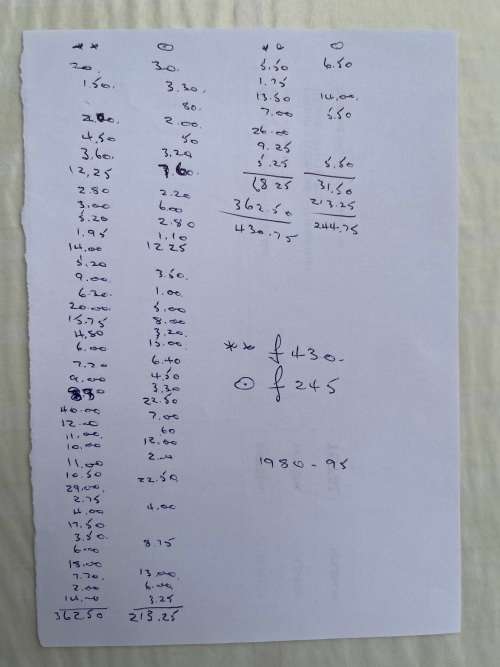 ** ⊙ ** ⊙
20. 30. 5.50 6.50
1.50. 3.30. 1.75
80. 13.50 14.00
2.00. 2.00. 7.00 5.50
4.50 50 26.00
3.60. 3.20 9.25
12.25 7.60. 5.25 5.50
2.80 2.20 68 25 31.50
3.00 6.00 362.50 213.25
5.20 2.80 430.75 244.75
1.95 1.10
14.00 12 25
5.20
9.00 3.50.
6.20. 1.00.
20.00 5.00
15.75 8.00
4.80 3.20.
6.00 13.00. ** £430.
7.70 6.40
9.00 4.50 ⊙ £245
3.30
40.00 22.50
12.00 7.00
11.00. 60
10.00 12.00
11.00 1980-95
10.50 22.50
29.00.
2.75
4.00 4.00
17.50
3.50.
6.00 8.75
18.00
7.70. 13.00
2.00 6.00
14.00 3.25
362 50 213.25